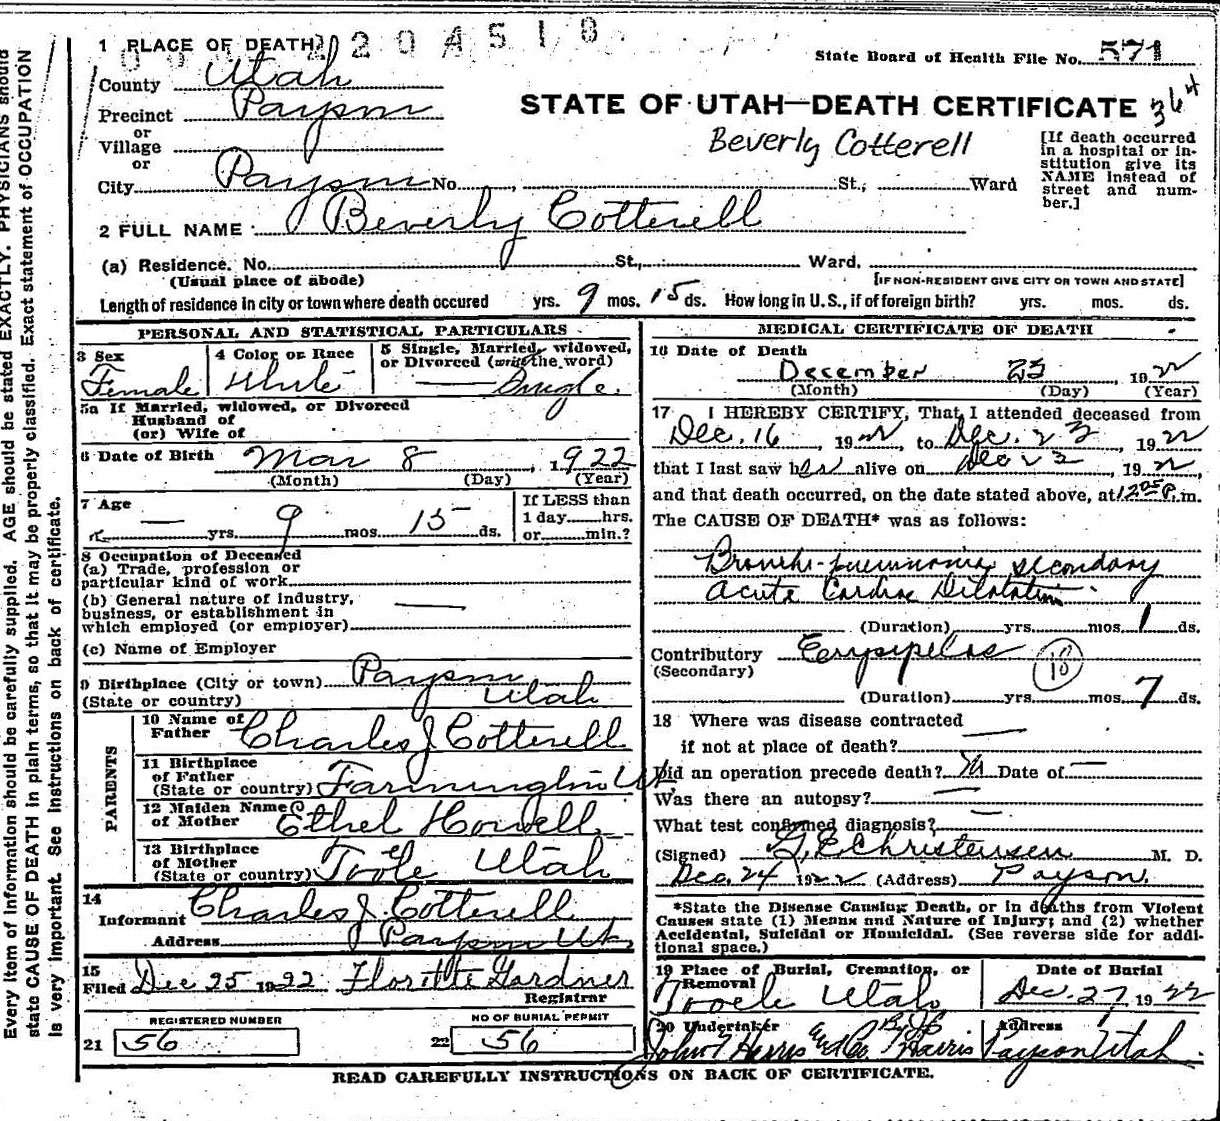 2 2 0 4 5 1 8
1 PLACE OF DEATH
State Board of Health File No. 571
County Utah
Precinct Payson
or
Village
or
City Payson No. , St.; Ward
STATE OF UTAH—DEATH CERTIFICATE 364
Beverly Cotterell
[If death occurred
in a hospital or in-
stitution give its
NAME instead of
street and num-
ber.]
2 FULL NAME Beverly Cotterell
(a) Residence. No. St., Ward.
(Usual place of abode) [IF NON-RESIDENT GIVE CITY OR TOWN AND STATE]
Length of residence in city or town where death occured yrs. 9 mos. 15 ds. How long in U.S., if of foreign birth? yrs. mos. ds.
PERSONAL AND STATISTICAL PARTICULARS
3 Sex
Female
4 Color or Race
White
5 Single, Married, widowed,
or Divorced (write the word)
Single.
5a If Married, widowed, or Divorced
Husband of
(or) Wife of
6 Date of Birth Mar 8, 1922
(Month) (Day) (Year)
7 Age
— yrs. 9 mos. 15 ds.
If LESS than
1 day......hrs.
or......min.?
8 Occupation of Deceased
(a) Trade, profession or
particular kind of work
(b) General nature of industry,
business, or establishment in
which employed (or employer) —
(c) Name of Employer
9 Birthplace (City or town) Payson
(State or country) Utah
PARENTS
10 Name of
Father Charles J Cotterell
11 Birthplace
of Father
(State or country) Farmington Ut.
12 Maiden Name
of Mother Ethel Howell
13 Birthplace
of Mother
(State or country) Tooele Utah
14
Informant Charles J. Cotterell
Address Payson Ut.
15
Filed Dec 25 1922 Florette Gardner
Registrar
REGISTERED NUMBER
21 56
NO OF BURIAL PERMIT
22 56
MEDICAL CERTIFICATE OF DEATH
16 Date of Death
December 23, 1922
(Month) (Day) (Year)
17 I HEREBY CERTIFY, That I attended deceased from
Dec. 16, 1922, to Dec. 23, 1922
that I last saw her alive on Dec 22, 1922,
and that death occurred, on the date stated above, at 12 05 P.m.
The CAUSE OF DEATH* was as follows:
Broncho-pneumonia secondary
Acute Cardiac Dilatation.
(Duration) yrs. mos. 1 ds.
Contributory Erysipelas
(Secondary)
(Duration) yrs. mos. 7 ds.
18 Where was disease contracted
if not at place of death? —
Did an operation precede death? No Date of —
Was there an autopsy? —
What test confirmed diagnosis? —
(Signed) G. E Christensen M. D.
Dec. 24 1922 (Address) Payson.
*State the Disease Causing Death, or in deaths from Violent
Causes state (1) Means and Nature of Injury; and (2) whether
Accidental, Suicidal or Homicidal. (See reverse side for addi-
tional space.)
19 Place of Burial, Cremation, or
Removal
Tooele Utah
Date of Burial
Dec. 27, 1922
20 Undertaker
John T Harris and Co
Harris
Address
Payson Utah.
READ CAREFULLY INSTRUCTIONS ON BACK OF CERTIFICATE.
Every item of information should be carefully supplied. AGE should be stated EXACTLY. PHYSICIANS should
state CAUSE OF DEATH in plain terms, so that it may be properly classified. Exact statement of OCCUPATION
is very important. See instructions on back of certificate.